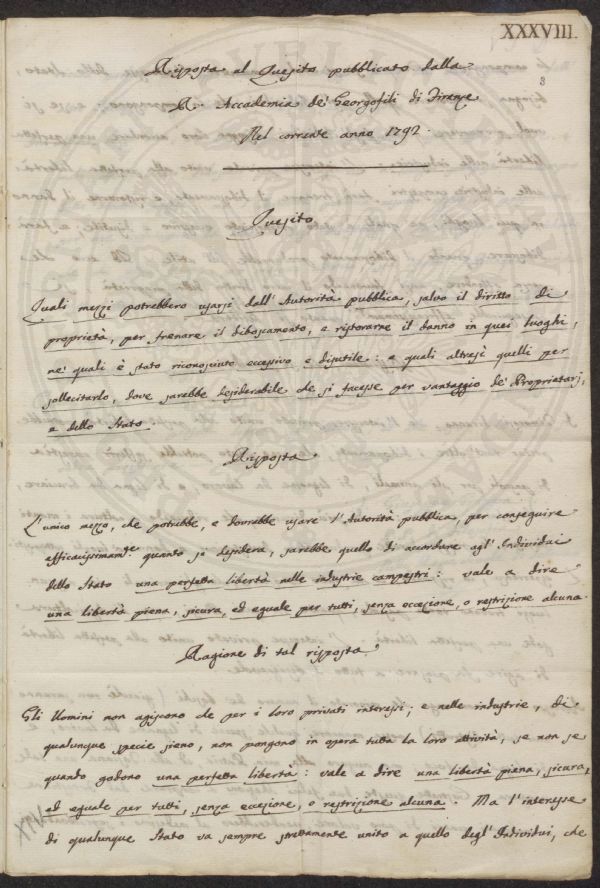 XXXVIII.
8
Risposta al Quesito pubblicato dalla
R. Accademia de' Georgofili di Firenze
Nel corrente anno 1792.
Quesito
Quali mezzi potrebbero usarsi dall'Autorità pubblica, salvo il diritto di
proprietà, per frenare il diboscamento, e ristorarne il danno in quei luoghi,
ne' quali è stato riconosciuto eccessivo e disutile: e quali altresì quelli per
sollecitarlo, dove sarebbe desiderabile che si facesse per vantaggio de' Proprietarj,
e dello Stato.
Risposta
L'unico mezzo, che potrebbe, e dovrebbe usare l'Autorità pubblica, per conseguire
efficacissimam.te quando si desidera, sarebbe quello di accordare agl'Individui
dello Stato una perfetta libertà nelle industrie campestri: vale a dire
una libertà piena, sicura, ed eguale per tutti, senza eccezione, o restrizione alcuna.
Ragione di tal risposta
Gli Uomini non agiscono che per i loro privati interessi; e nelle industrie, di
qualunque specie sieno, non pongono in opera tutta la loro attività, se non se
quando godono una perfetta libertà: vale a dire una libertà piena, sicura,
ed eguale per tutti, senza eccezione, o restrizione alcuna. Ma l'interesse
di qualunque Stato va sempre strettamente unito a quello degl'Individui, che